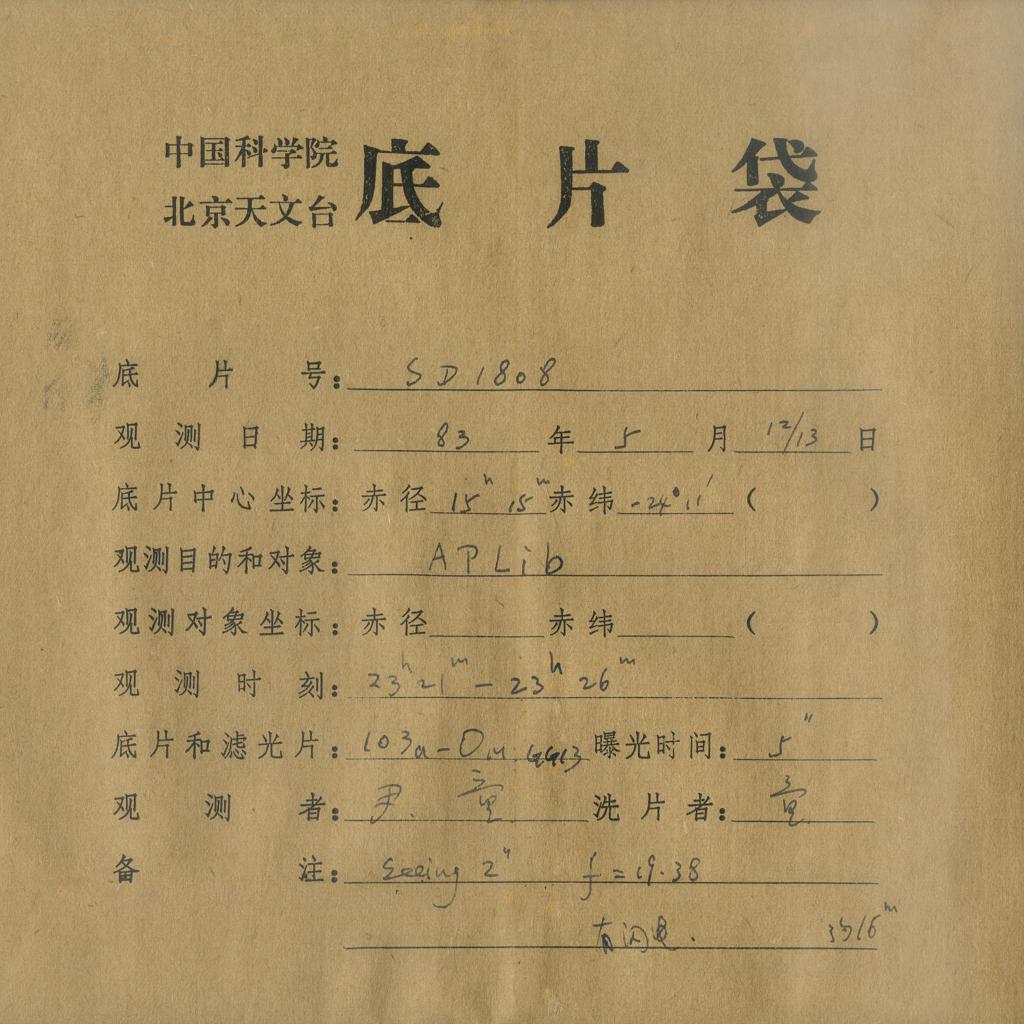 中国科学院
北京天文台
底片袋
底片号： SD1808
观测日期： 83 年 5 月 12/13 日
底片中心坐标：赤径 15ʰ 15ᵐ 赤纬 -24°11′ （ ）
观测目的和对象： APLib
观测对象坐标：赤径 赤纬 （ ）
观测时刻： 23ʰ21ᵐ - 23ʰ26ᵐ
底片和滤光片： 103a-O GG13 曝光时间： 5"
观测者： 尹. 童 洗片者： 童
备注： Seeing 2" f=19.38
有闪电. 16ᵐ